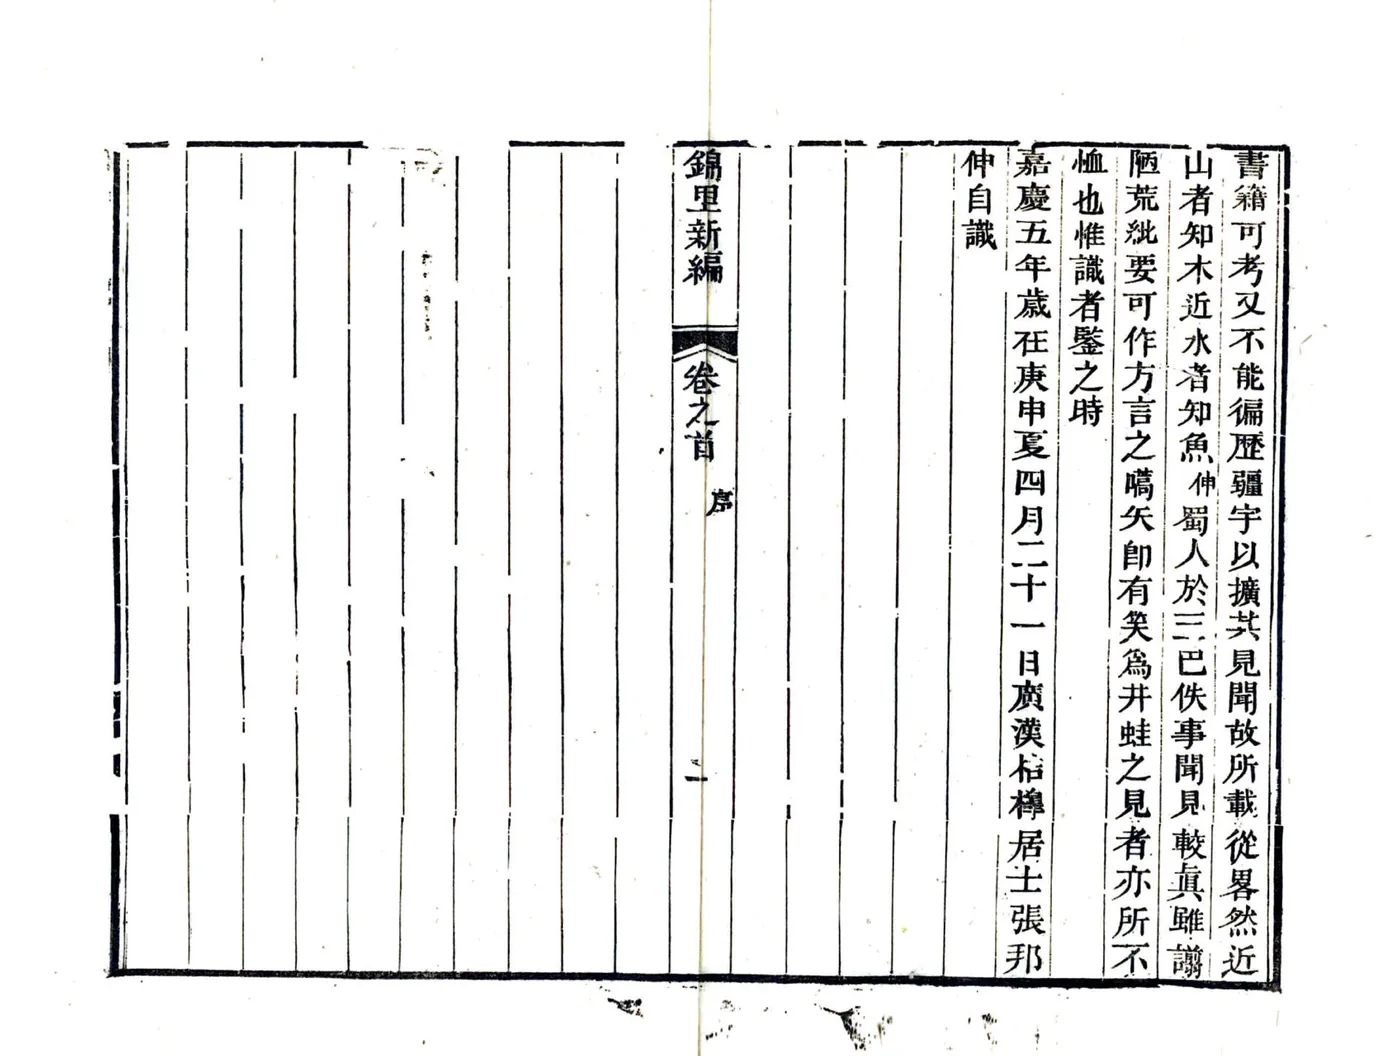 書籍可考又不能徧歷疆宇以擴其見聞故所載從畧然近
山者知木近水者知魚伸蜀人於三巴佚事聞見較眞雖譾
陋荒紕要可作方言之嚆矢卽有笑爲井蛙之見者亦所不
恤也惟識者鑒之時
嘉慶五年歲在庚申夏四月二十一日廣漢栝櫸居士張邦
伸自識
錦里新編
卷之首
序
二